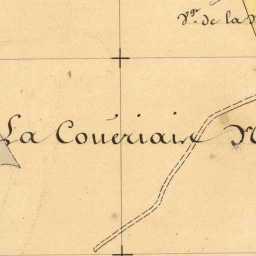 Vge. de la
La Couëriais